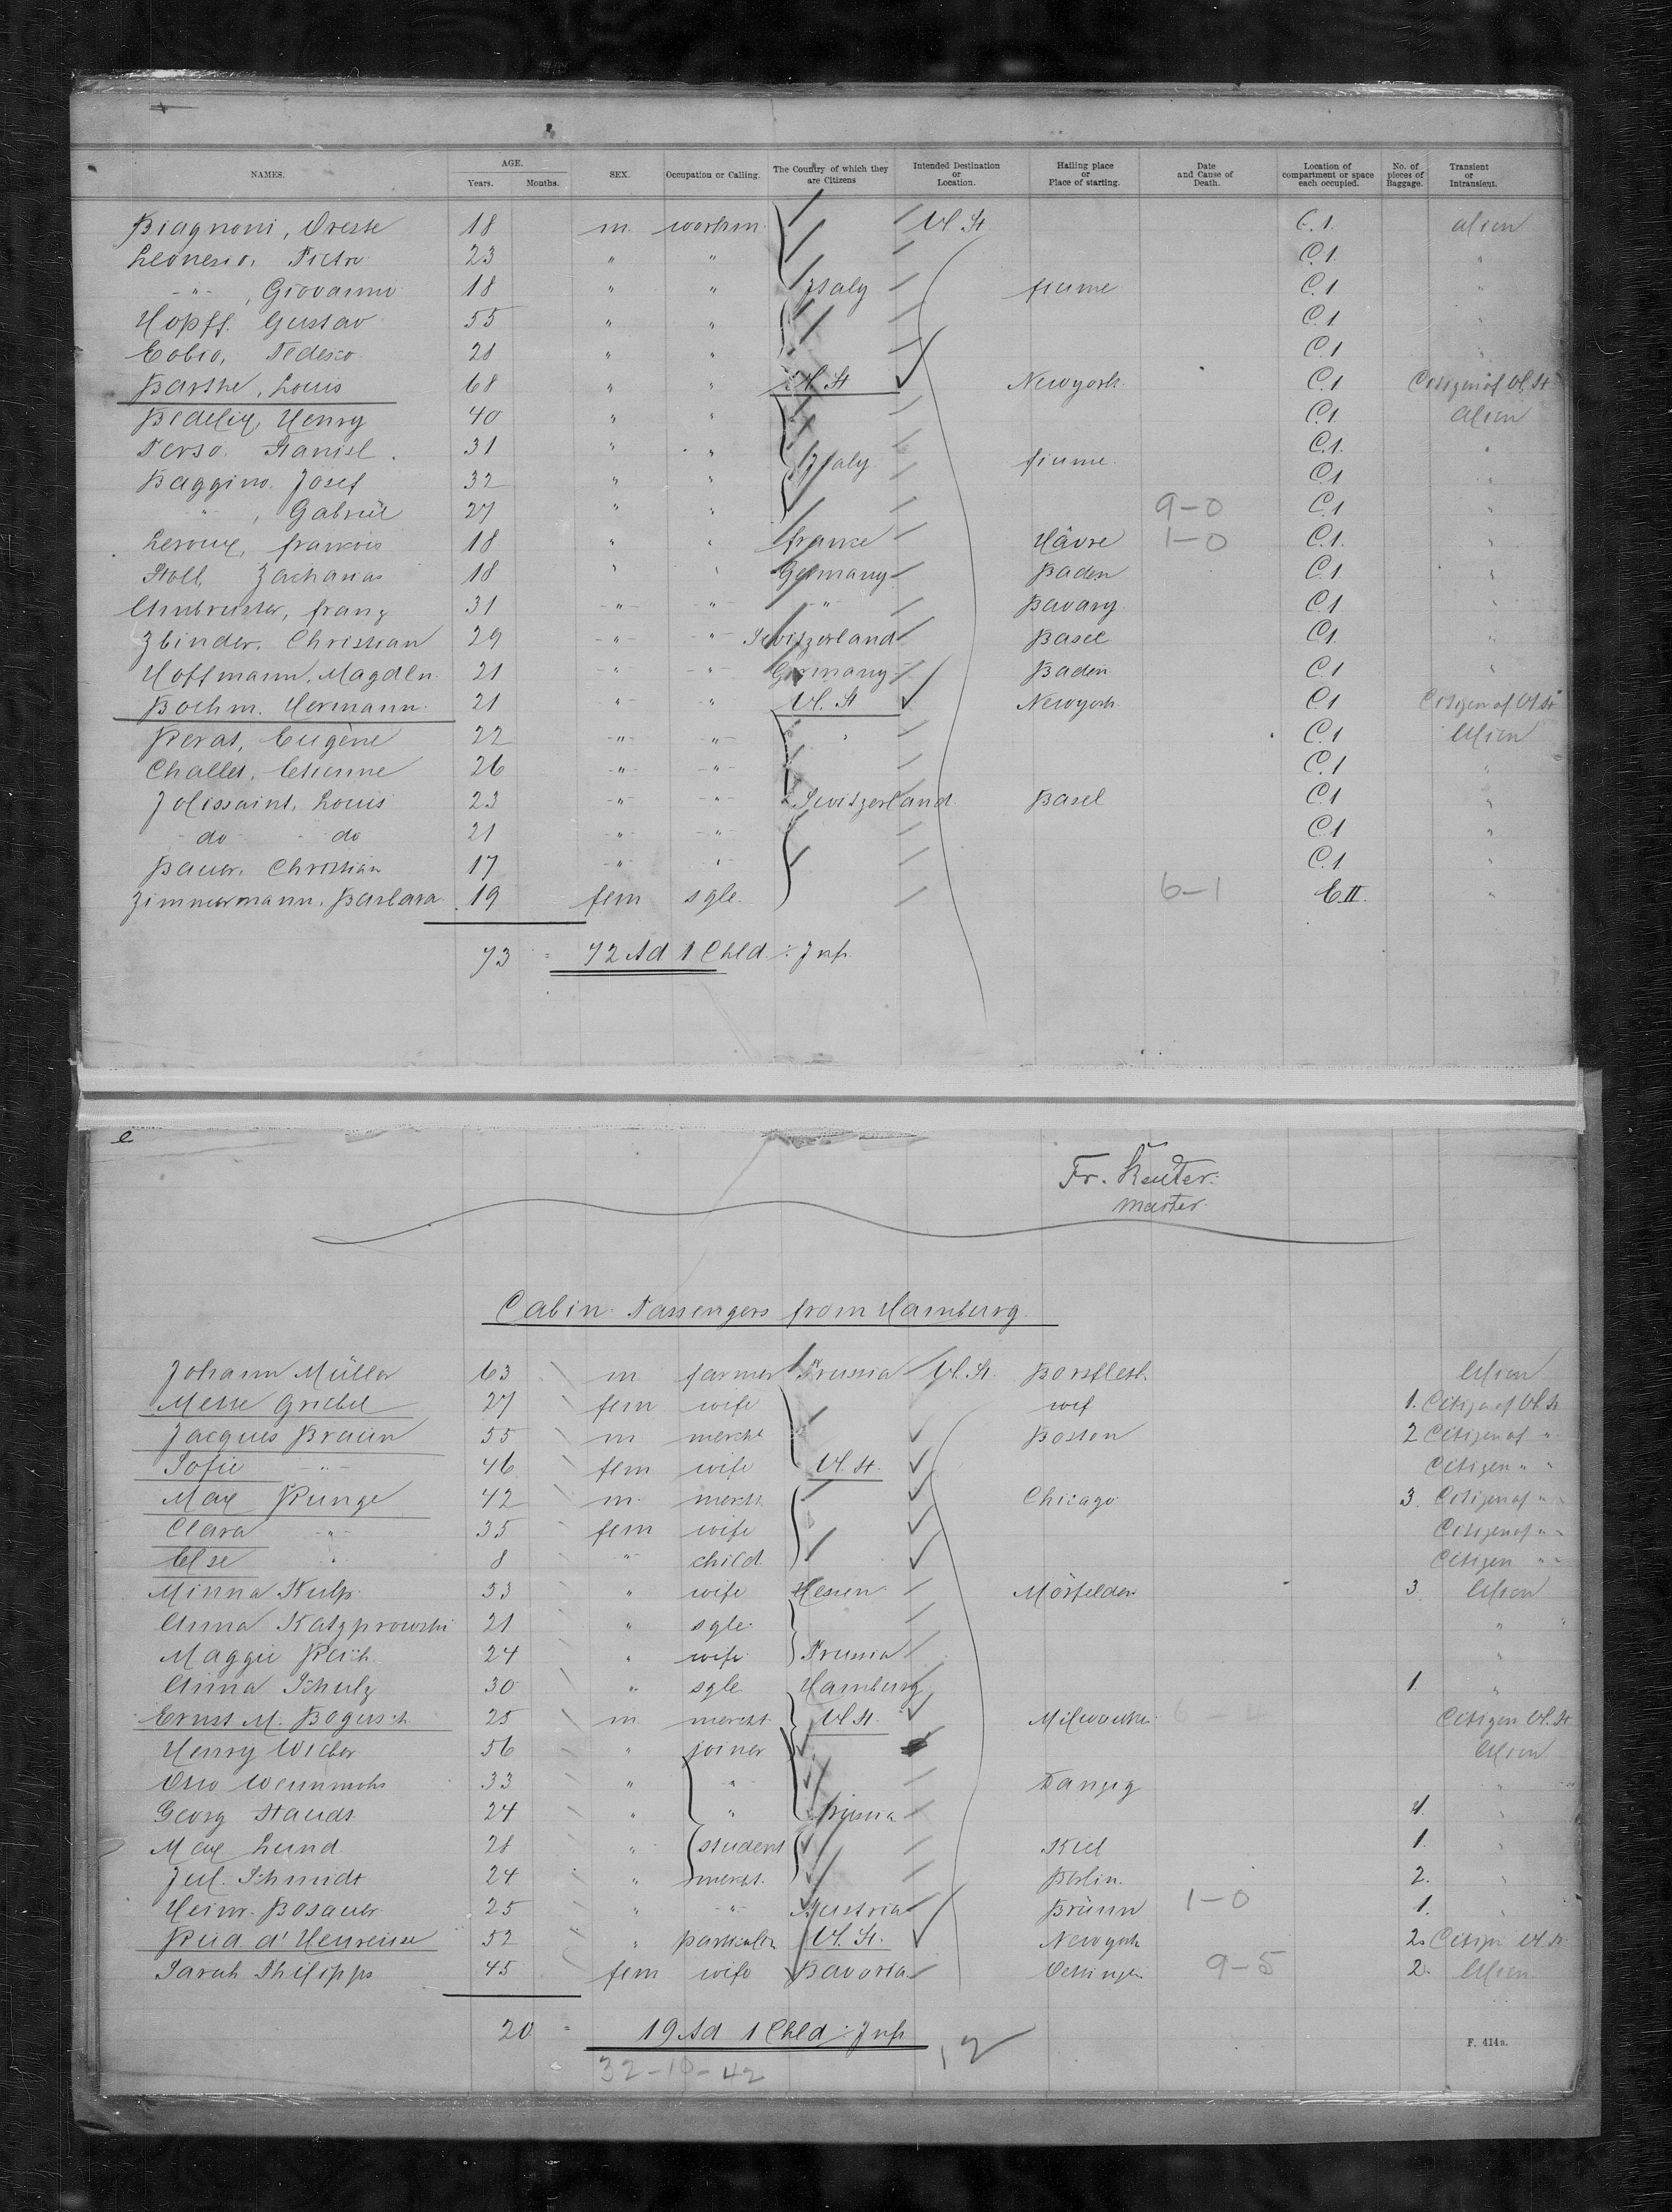 NAMES. AGE. Years. Months. SEX. Occupation or Calling. The Country of which they are Citizens Intended Destination or Location. Hailing place or Place of starting. Date and Cause of Death. Location of compartment or space each occupied. No. of pieces of Baggage. Transient or Intransient.
Biagnoni, Oreste 18 m workm. Ul. St C.1. alien
Leonesio, Pietro 23 " " C.1. "
- " - , Giovanni 18 " " Italy fiume C.1 "
Hopff. Gustav 55 " " C.1 "
Tedesco 21 " " C.1 "
Barthe, Louis 68 " " U. St Newyork. C.1 Citizen of U. St
Henry 40 " " C.1 alien
Perso. Stanisl. 31 " " Italy fiume. C.1. "
Baggino. Josef 32 " " C.1 "
" , Gabriel 27 " " 9-0 C.1 "
Leroux, francois 18 " " france Hâvre 1-0 C.1. "
Stoll, Zacharias 18 " " Germany Baden C.1 "
Armbruster, franz 31 - " - - " - - " - Bavary C.1 "
Zbinder, Christian 29 - " - - " - Switzerland Basel C.1. "
Hoffmann, Magdln. 21 - " - - " - Germany Baden C.1 "
Boehm. Hermann. 21 " " U. St Newyork. C.1 Citizen of U St
Peras, Eugène 22 - " - - " - C.1 Alien
Challet, Etienne 26 - " - - " - C.1 "
Jolissaint, Louis 23 - " - - " - Switzerland Basel C.1 "
do do 21 - " - - " - C.1 "
Bauer, Christian 17 - " - " C.1 "
Zimmermann, Barbara 19 fem sgle. 6-1 C.II. "
73 = 72 Ad 1 Chld ./. Inf.
e
Fr. Reuter.
master.
Cabin Passengers from Hamburg.
Johann Müller 63 m farmer Prussia U. St. Borsfleth. Alien
Griebel 27 fem wife 1. Citizen of U. St
Jacques Braun 55 m mercht Boston 2 Citizen of "
Sofie - " - 46 fem wife U. St. Citizen " "
Max Runge 42 m. mercht. Chicago 3. Citizen of " "
Clara - " - 35 fem wife Citizen of " "
Else " 8 " child. Citizen " "
Minna Kulp. 33 " wife Hessen Mörfelden 3. Alien
Anna Katzprowski 21 " sgle. "
Maggie Reich. 24 " wife Prussia "
Anna Schulz 30 " sgle Hamburg 1. "
Ernst M. Bogusch 25 m mercht U. St. Milwaukee Citizen U. St
Henry Weber 56 " joiner Alien
Otto 33 " " Danzig "
Georg Staudt 24 " " Prussia 1. "
Max Lund 28 " student Kiel 1. "
Jul. Schmidt 24 " mercht. Berlin. 2. "
Heinr. Bosauer 25 " - " - Austria Brünn 1-0 1. "
52 " U. St. Newyork 2. Citizen U. St.
Sarah Philipps 45 fem wife Bavaria Oettingen 9-5 2. Alien
20 = 19 Ad 1 Chld ./. Inf.
32-10-42
12
F. 414a.